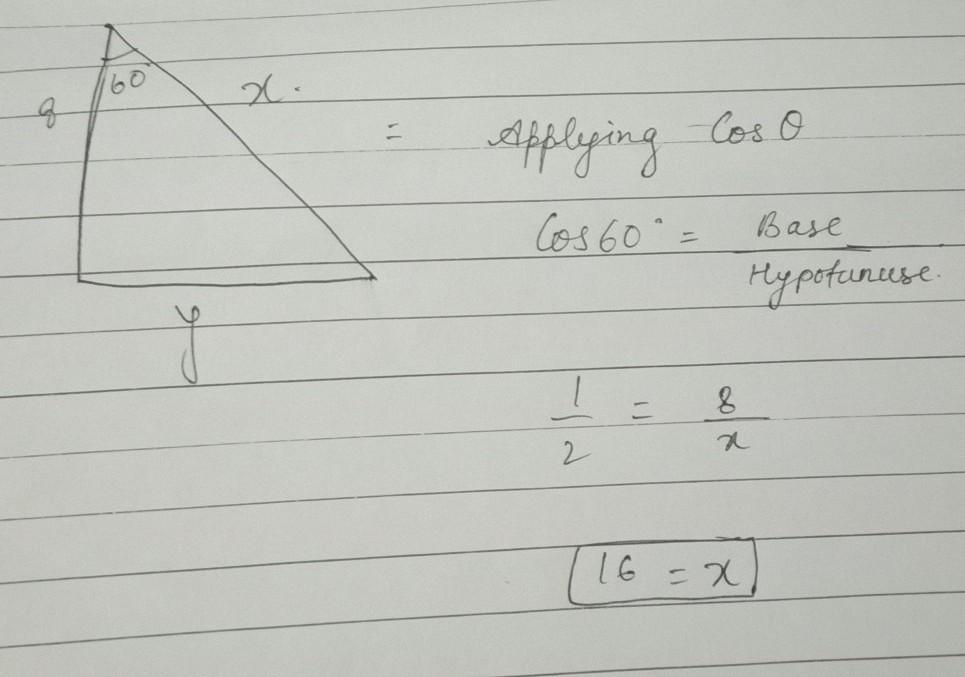 60
8
x.
= Applying Cos θ
Cos 60° = Base
Hypotunuse.
y
1 = 8
2 x
16 = x